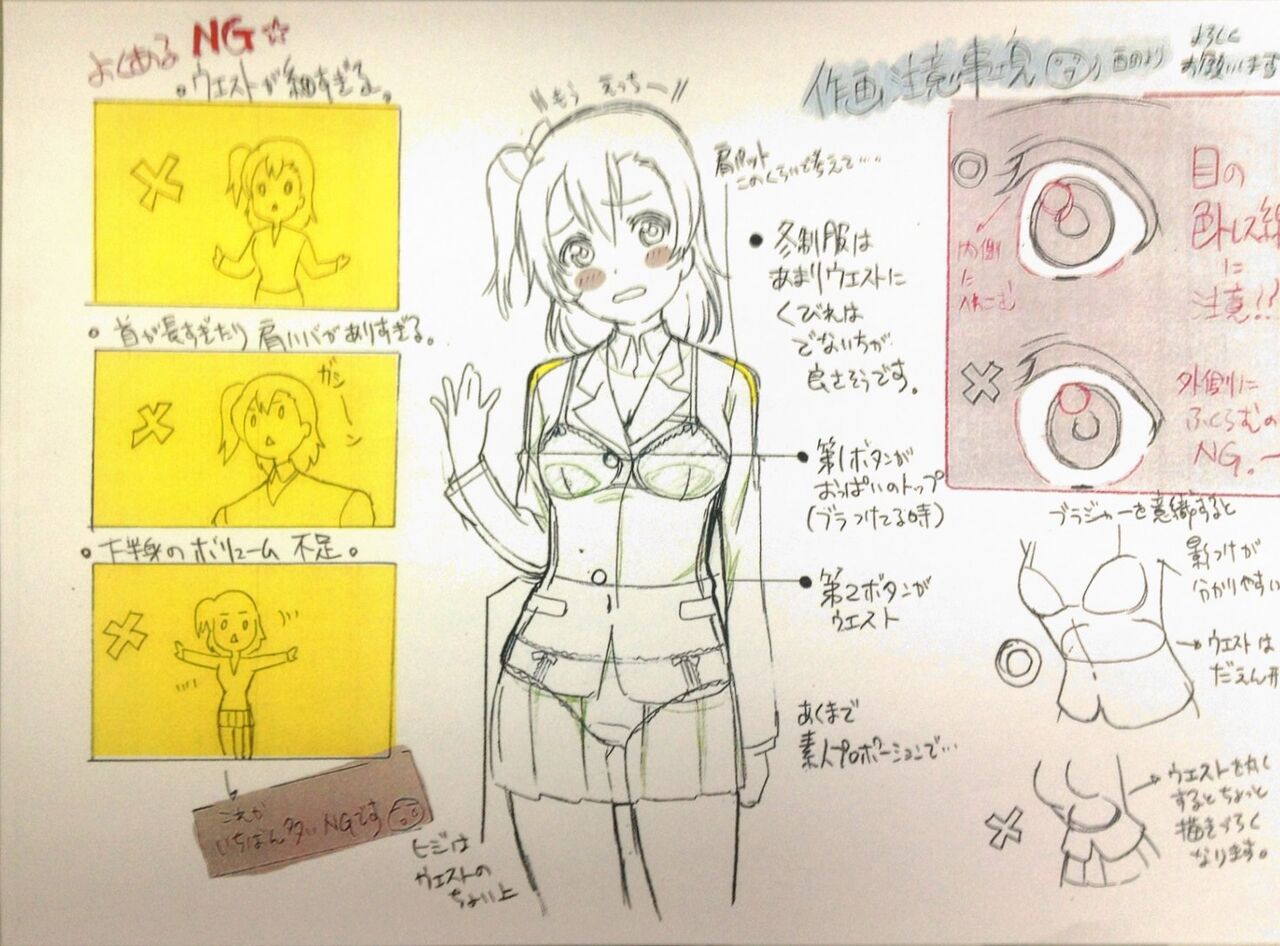 よくある NG☆
・ウエストが細すぎる。
・首が長すぎたり 肩ハバがありすぎる。
ガシーーン
・下半身のボリューム 不足。
これが
いちばん多いNGです
もう えっちー
ヒジは
ウエストの
ちょい上
作画注意事項 西田より
よろしく
お願いします
肩パット
このくらいで考えて……
●冬制服は
あまりウエストに
くびれは
でないちが
良さそうです。
●第1ボタンが
おっぱいのトップ
(ブラつけてる時)
●第2ボタンが
ウエスト
あくまで
素人プロポーションで…
目の
色トレス線
に
注意!!
内側
に
外側に
ふくらむの
NG.
ブラジャーを意識すると
影つけが
分かりやすい
ウエストは
だえん形
ウエストを丸く
するとちょっと
描きづらく
なります。